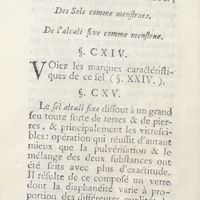 Des Sels comme menstrues.
De l'alcali fixe comme menstrue.
§. CXIV.
VOiez les marques caractéristi-
ques de ce sel (§. XXIV.).
§. CXV.
Le sel alcali fixe dissout à un grand
feu toute sorte de terres & de pier-
res, & principalement les vitresci-
bles: opération qui réussit d'autant
mieux que la pulvérisation & le
mélange des deux substances ont
été faits avec plus d'exactitude.
Il résulte de ce composé un verre
dont la diaphanéité varie à pro-
portion des différentes